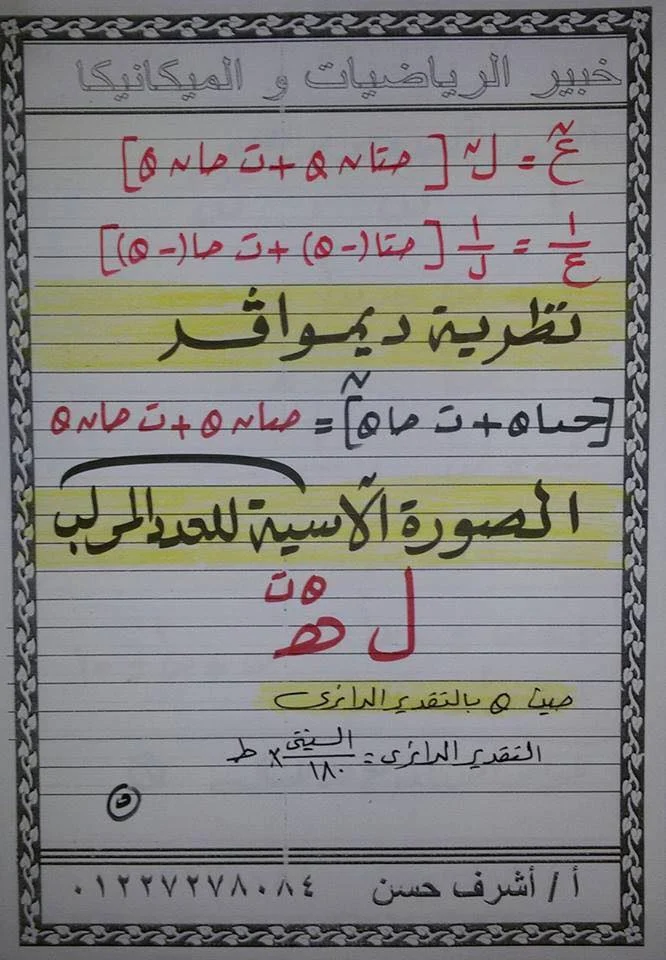 خبير الرياضيات و الميكانيكا
عⁿ = لⁿ [ حتا ن θ + ت حا ن θ ]
١/ع = ١/ل [ حتا (-θ) + ت حا (-θ) ]
نظرية ديموافر
[حتا θ + ت حا θ]ⁿ = حتا ن θ + ت حا ن θ
الصورة الأسية للعدد المركب
ل هـ^θت
حيث θ بالتقدير الدائرى
التقدير الدائرى = الستينى/١٨٠ × ط
٥
أ / أشرف حسن ٠١٢٢٧٢٧٨٠٨٤